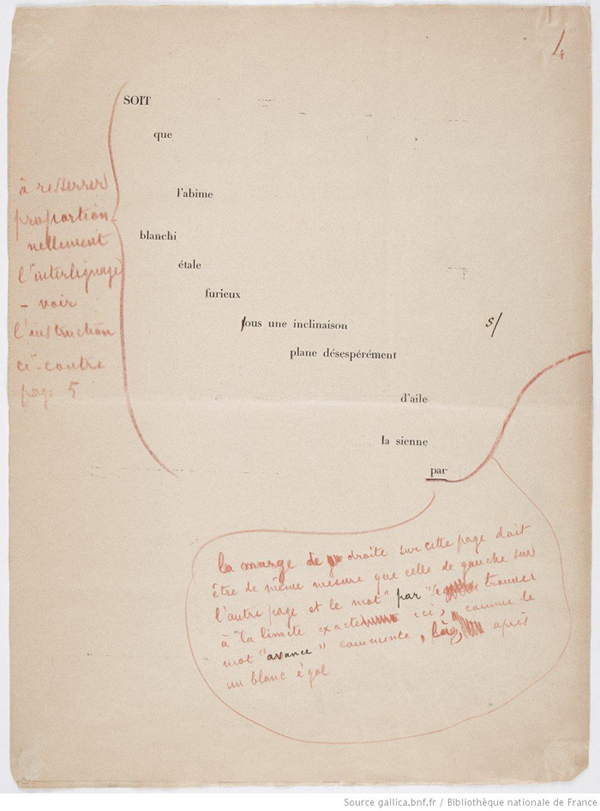 4
SOIT
que
l'abime
blanchi
étale
furieux
sous une inclinaison
s/
plane désespérément
d'aile
la sienne
par
à resserrer
proportion-
nellement
l'interlignage
- voir
l'instruction
ci-contre
page 5
la marge de droite sur cette page doit
être de même mesure que celle de gauche sur
l'autre page et le mot "par" se trouver
à la limite exacte ici, comme le
mot "avance" commence, là, après
un blanc égal
Source gallica.bnf.fr / Bibliothèque nationale de France